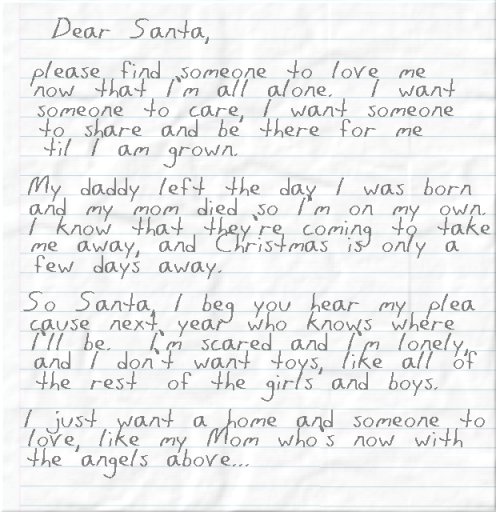 Dear Santa,
please find someone to love me
now that I'm all alone. I want
someone to care, I want someone
to share and be there for me
til I am grown.
My daddy left the day I was born
and my mom died so I'm on my own.
I know that they're coming to take
me away, and Christmas is only a
few days away.
So Santa, I beg you hear my plea
cause next year who knows where
I'll be. I'm scared and I'm lonely,
and I don't want toys, like all of
the rest of the girls and boys.
I just want a home and someone to
love, like my Mom who's now with
the angels above...